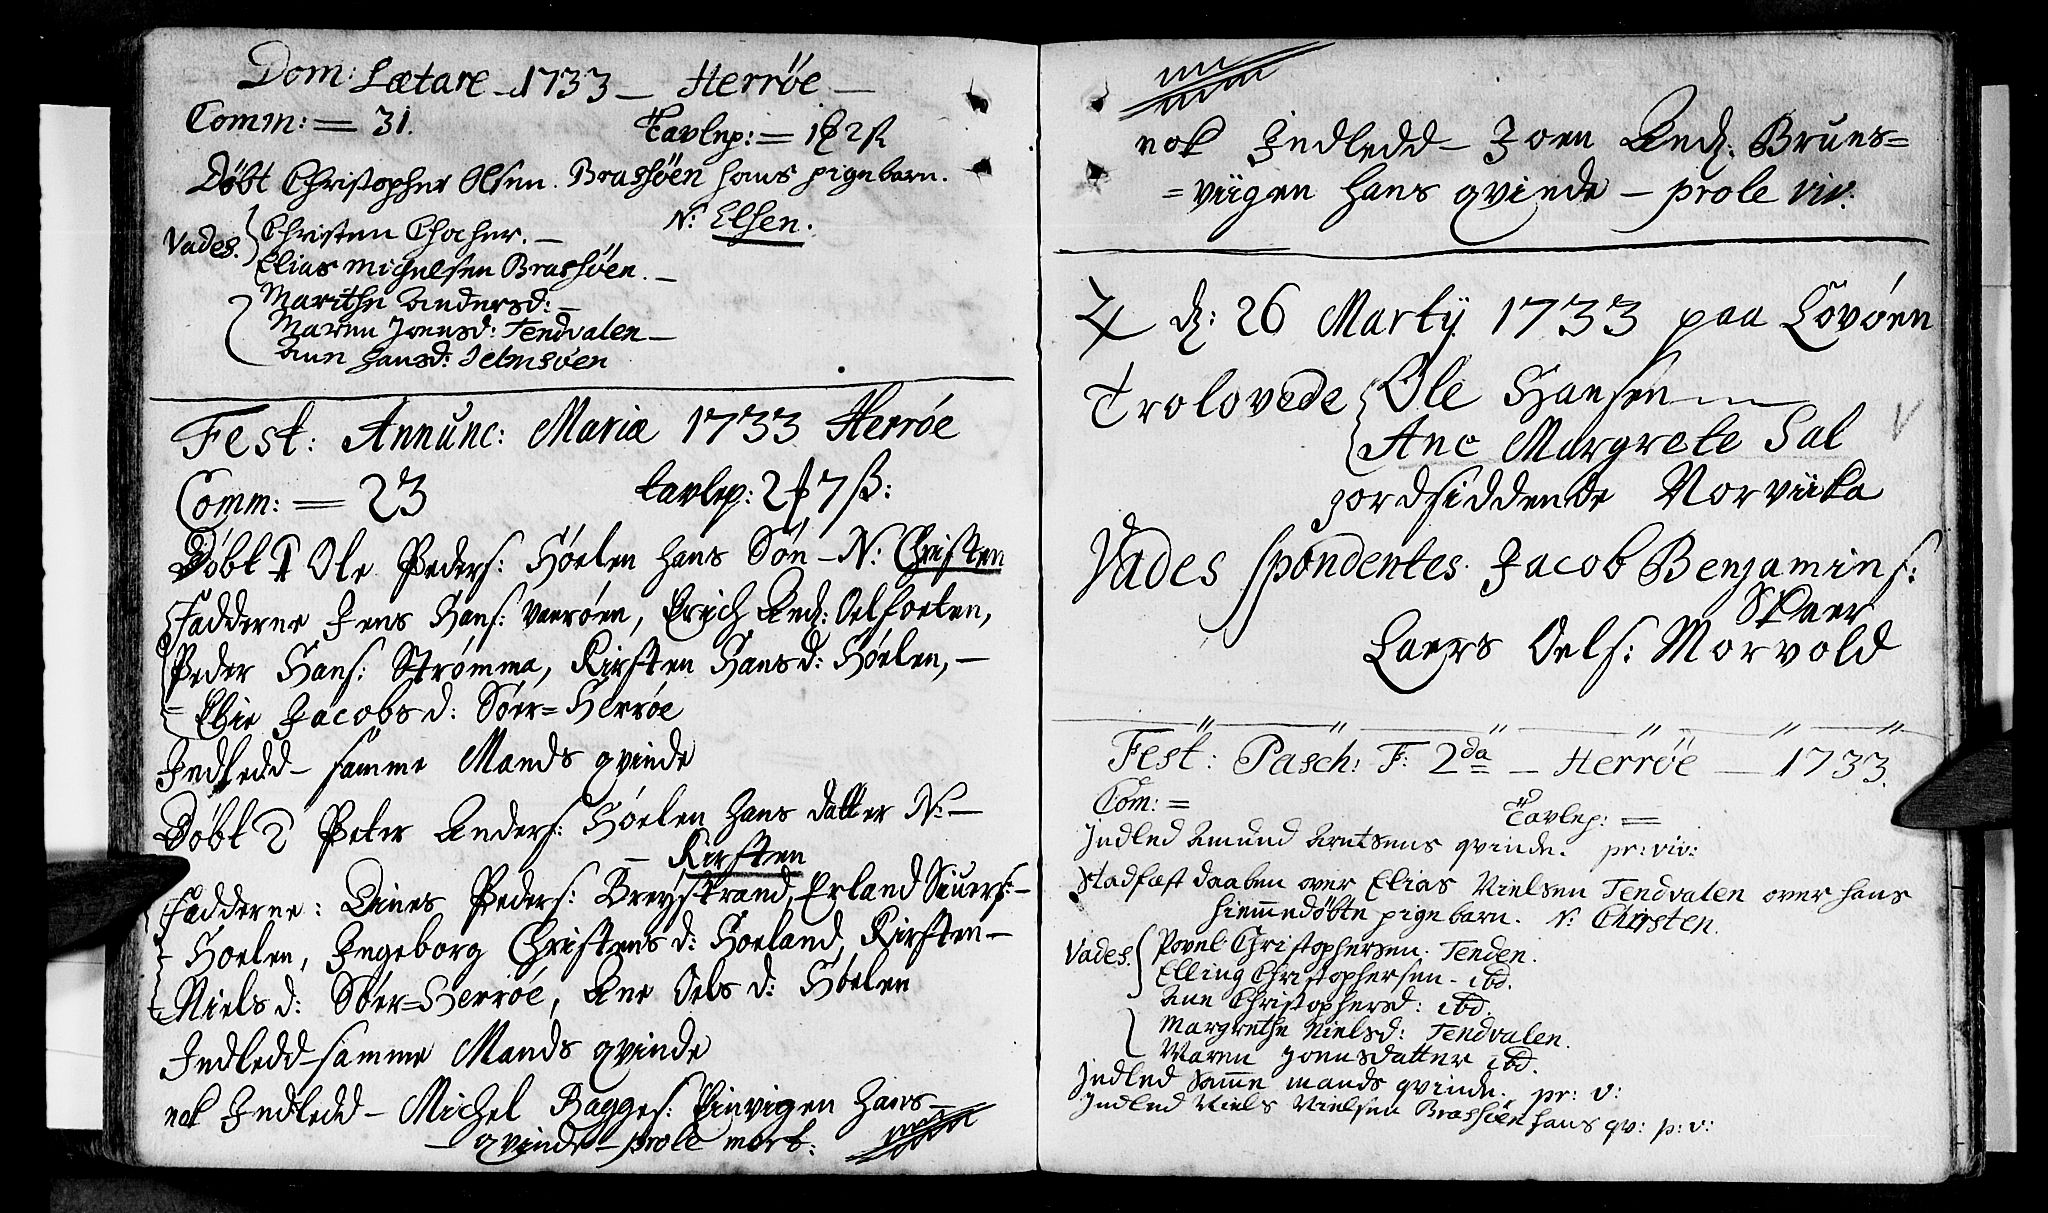 Dom: Lætare - 1733 - Herrøe -
Comm: = 31. Tavlep: = 2 ß
Døbt Christopher Olsen Brasøen hans pigebarn.
N: Elsen.
Vades. Christen
Elias Michelsen Brasøen. -
Marithe Andersd: -
Maren Joensd: Tendvalen -
Ann Hansd: Jelmsøen
Fest: Annunc: Mariæ 1733 Herrøe
Comm: = 23 tavlep: 2 7 ß:
Døbt 1 Ole Peders: Høelen hans Søn - N: Christen
Fadderne Jens Hans: Værøen, Erich And:
Peder Hans: Strømma, Kirsten Hansd: Høelen, -
= Jacobsd: Søer=Herrøe
Indledd - samme Mands qvinde
Døbt 2 Peter Anders: Høelen hans datter N: -
- Kirsten
Fadderne: Dines Peders: Breystrand, Erland Siuers: -
Hoelen, Ingeborg Christensd: Hoeland, Kirsten -
Nielsd: Søer=Herrøe, Ane Oelsd: Høelen
Indledd - samme Mands qvinde
nok Indledd - Michel Bagges: hans -
- qvinde - prole mort:
nok Indledd - Joen And: Brues=
=viigen hans qvinde - prole viv:
4 d: 26 Martij 1733 paa Løvøen
Trolovede Ole Hansen
Ane Margrete Sal
jordsiddende Norviika
Vades spondentes. Jacob Benjamins:
Skær
Laers Oels: Morvold
Fest: Pasch: F: 2da - Herrøe - 1733.
Com: = Tavlep: =
Indled Amund Arntsens qvinde. pr: viv:
Stadfæst daaben over Elias Nielsen Tendvalen over hans
hiemmedøbte pigebarn. N: Chirsten.
Vades. Povel Christophersen. Tenden.
Elling Christophersen - ibd.
Ann Christophersd: ibd.
Margrethe Nielsd: Tendvalen.
Maren Joensdatter ibd.
Indled Samme mands qvinde. pr: v:
Indled Niels Nielsen Brasøen hans qv: p: v: